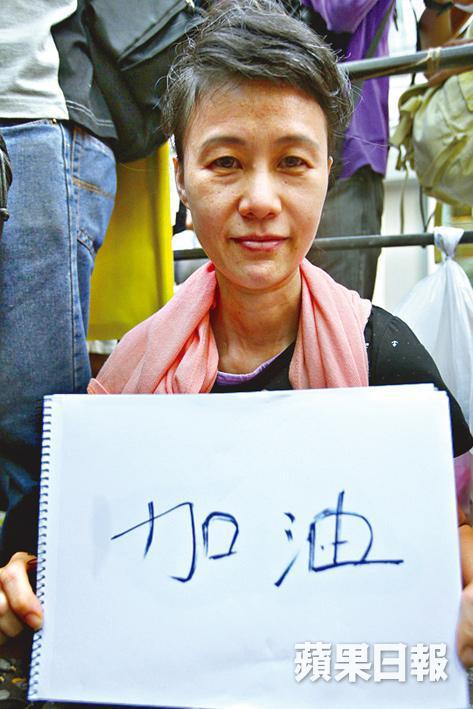 加油
蘋果日報